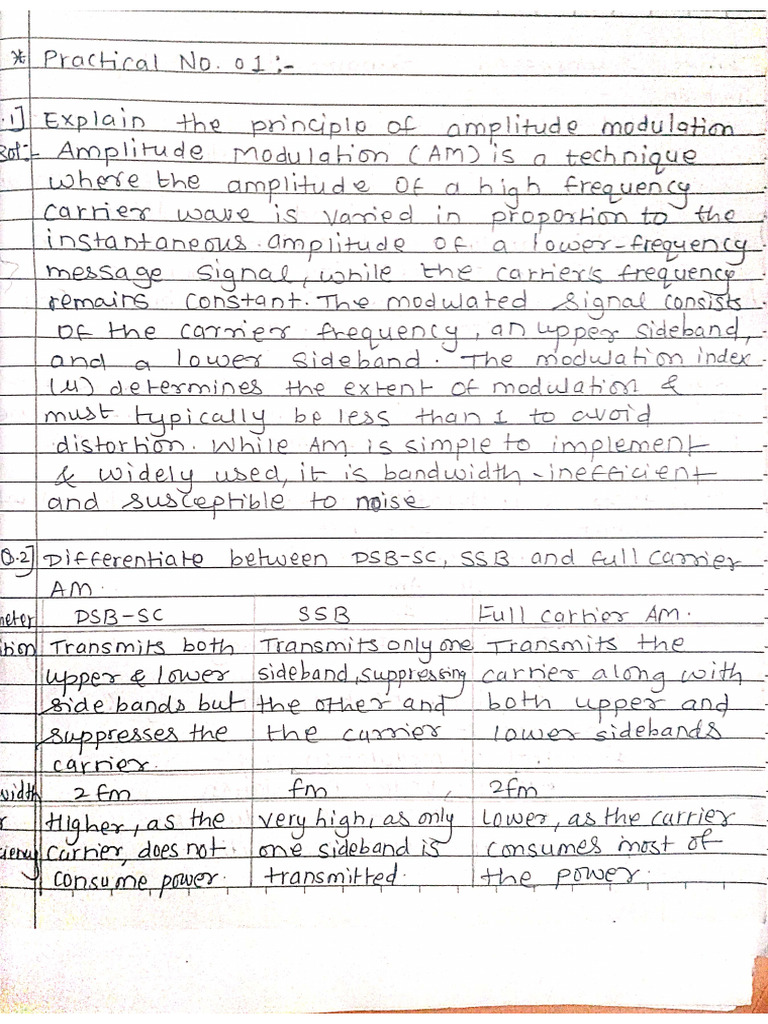 * Practical No. 01:-
.1] Explain the principle of amplitude modulation
Sol:- Amplitude Modulation (AM) is a technique
where the amplitude of a high frequency
carrier wave is varied in proportion to the
instantaneous amplitude of a lower-frequency
message signal, while the carrier's frequency
remains constant. The modulated signal consists
of the carrier frequency, an upper sideband,
and a lower sideband. The modulation index
(μ) determines the extent of modulation &
must typically be less than 1 to avoid
distortion. While AM is simple to implement
& widely used, it is bandwidth-inefficient
and susceptible to noise
Q.2] Differentiate between DSB-SC, SSB and full carrier
AM.
meter DSB-SC SSB Full carrier AM.
tion Transmits both Transmits only one Transmits the
upper & lower sideband, suppressing carrier along with
side bands but the other and both upper and
suppresses the the carrier lower sidebands
carrier.
width 2fm fm 2fm
r Higher, as the very high, as only lower, as the carrier
ciency carrier, does not one sideband is consumes most of
consume power. transmitted. the power.